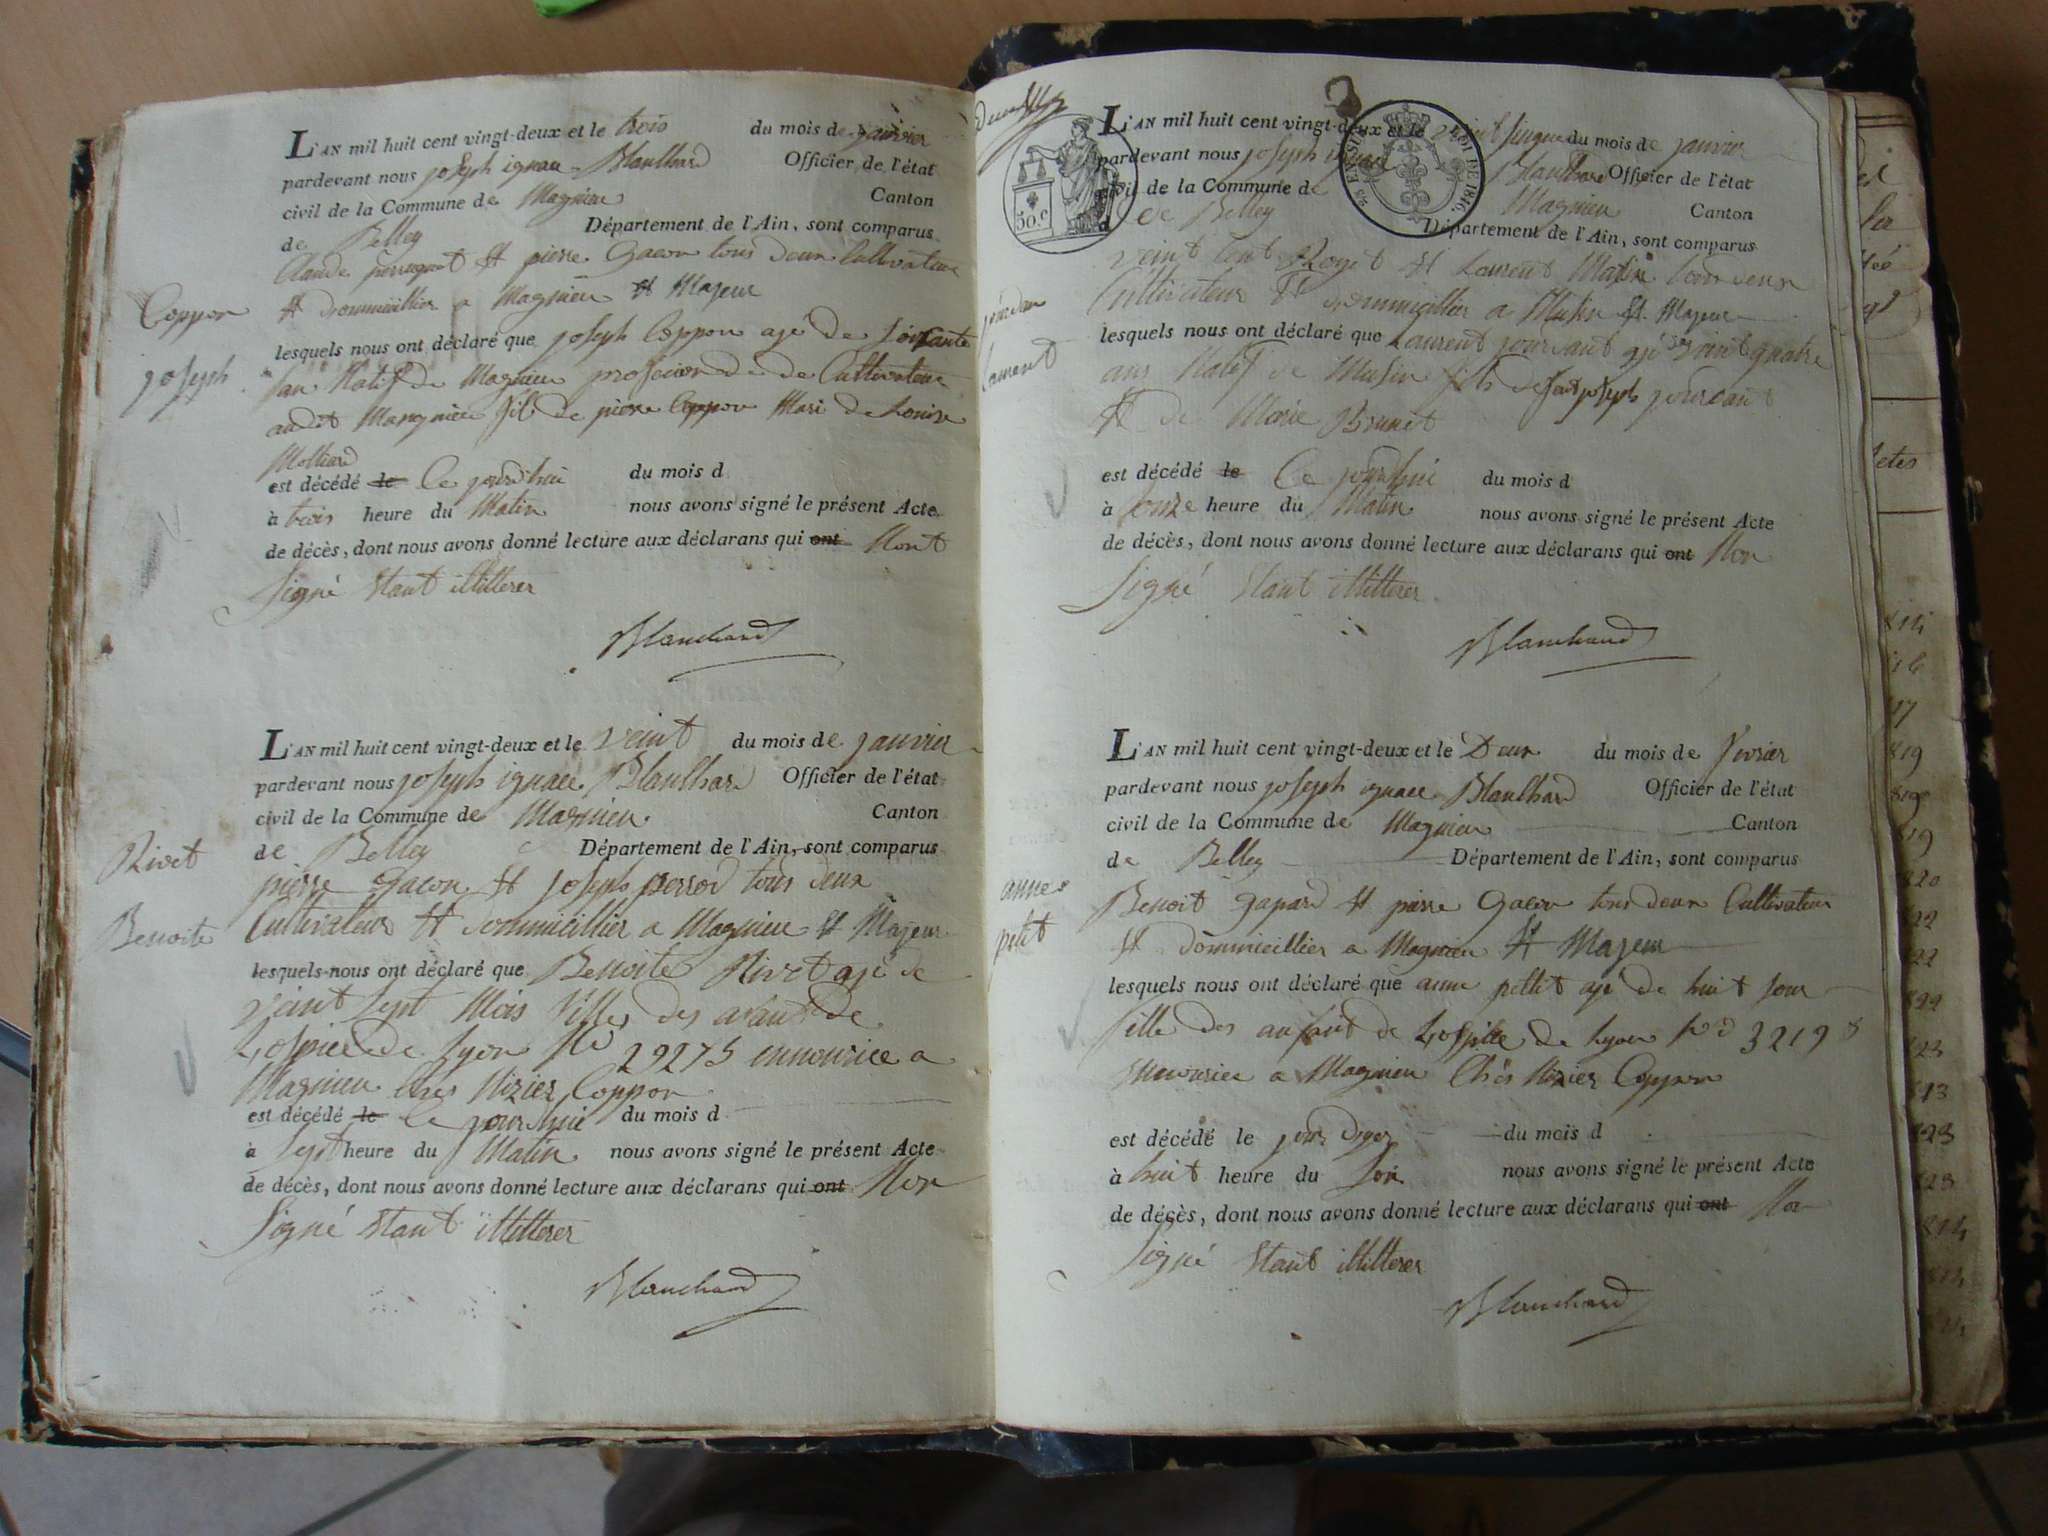 L'AN mil huit cent vingt-deux et le trois du mois de janvier
pardevant nous joseph ignace Blanlhard Officier de l'état
civil de la Commune de Magnieu Canton
de Belley Département de l'Ain, sont comparus
Claude perregont et pierre Gacon tous deux Cultivateur
Coppon
et dommicillier a Magnieu et Majeur
lesquels nous ont déclaré que joseph Coppon agé de soixante
joseph
natif de Magnieu profession de de Cultivateur
audit Mangnieu fil de pierre Coppon Mari de Louise
Molliard
est décédé le Ce jourdhui du mois d
à trois heure du Matin nous avons signé le présent Acte
de décès, dont nous avons donné lecture aux déclarans qui ont Nont
Signé Etant illitterer
Blanchard
L'AN mil huit cent vingt-deux et le veint du mois de janvier
pardevant nous joseph ignace Blanlhard Officier de l'état
civil de la Commune de Magnieu Canton
Rivet
de Belley Département de l'Ain, sont comparus
pierre Gacon et joseph perrod tous deux
Benoite
Cultivateur et dommicillier a Magnieu et Majeur
lesquels nous ont déclaré que Benoite Rivet agé de
veint sept Mois fille des de
Lospice de Lyon No 29275 ennourice a
Magnieu Ches Nizier Coppon
est décédé le Ce jourdhui du mois d
à sept heure du Matin nous avons signé le présent Acte
de décès, dont nous avons donné lecture aux déclarans qui ont Non
Signé Etant illitterer
Blanchard
50.c
LOI DE 1816
L'AN mil huit cent vingt-deux et le veint sinque du mois de janvier
pardevant nous joseph ignace Blanlhard Officier de l'état
civil de la Commune de Magnieu Canton
de Belley Département de l'Ain, sont comparus
Royet et Laurent Matin tous deux
Cultivateur et dommicillier a Musin et Majeur
jourdan
lesquels nous ont déclaré que Laurent jourdant agé de voint quatre
Laurent
ans Natif de Musin fils de joseph jourdant
et de Marie Brunet
est décédé le Ce jourdhui du mois d
à onze heure du Matin nous avons signé le présent Acte
de décès, dont nous avons donné lecture aux déclarans qui ont Non
Signé Etant illitterer
Blanchard
L'AN mil huit cent vingt-deux et le Deux du mois de fevrier
pardevant nous joseph ignace Blanlhard Officier de l'état
civil de la Commune de Magnieu Canton
de Belley Département de l'Ain, sont comparus
annes
Benoit gapard et pierre Gacon tous deux Cultivateur
petit
et dommicillier a Magnieu et Majeur
lesquels nous ont déclaré que anne pettit agé de huit jour
fille des anfant de Lospice de Lyon No 3219
a Magnieu Chés Nizier Coppon
est décédé le jour dyer du mois d
à huit heure du Soir nous avons signé le présent Acte
de décès, dont nous avons donné lecture aux déclarans qui ont Non
Signé Etant illitterer
Blanchard